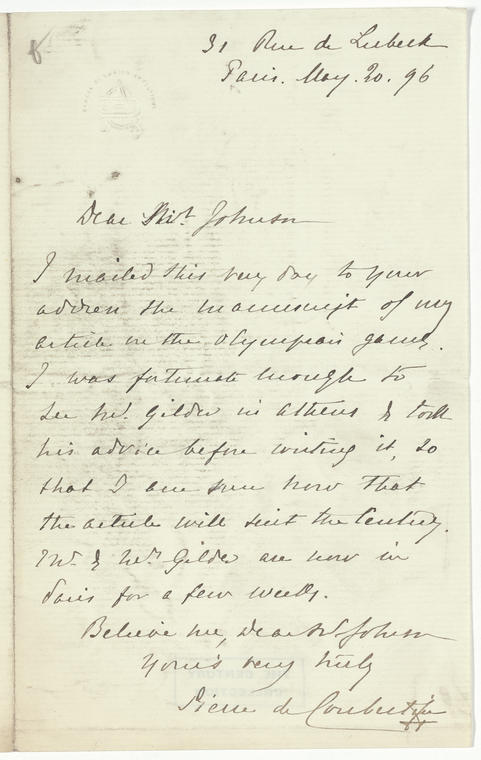 31 Rue de Lubeck
Paris. May. 20. 96
Dear Mr. Johnson
I mailed this very day to your
address the manuscript of my
article on the Olympian games.
I was fortunate enough to
see Mr. Gilder in Athens & took
his advice before writing it, so
that I am sure now that
the article will suit the Century.
Mr. & Mrs. Gilder are now in
Paris for a few weeks.
Believe me, dear Mr Johnson
Yours very truly
Pierre de Coubertin